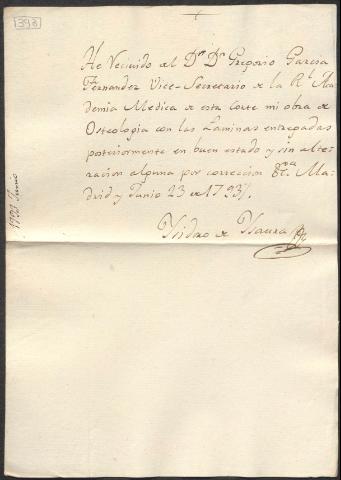 393
He Recivido del Dn. Dn. Gregorio Garcia
Fernandez Vice-Secretario de la Rl. Aca
demia Medica de esta Corte mi obra de
Osteologia con las Laminas entregadas
posteriormente en buen estado y sin alte-
racion alguna por correccion &ca. Ma-
drid y Junio 23 de 1793/.
Isidro de Isaura
Junio